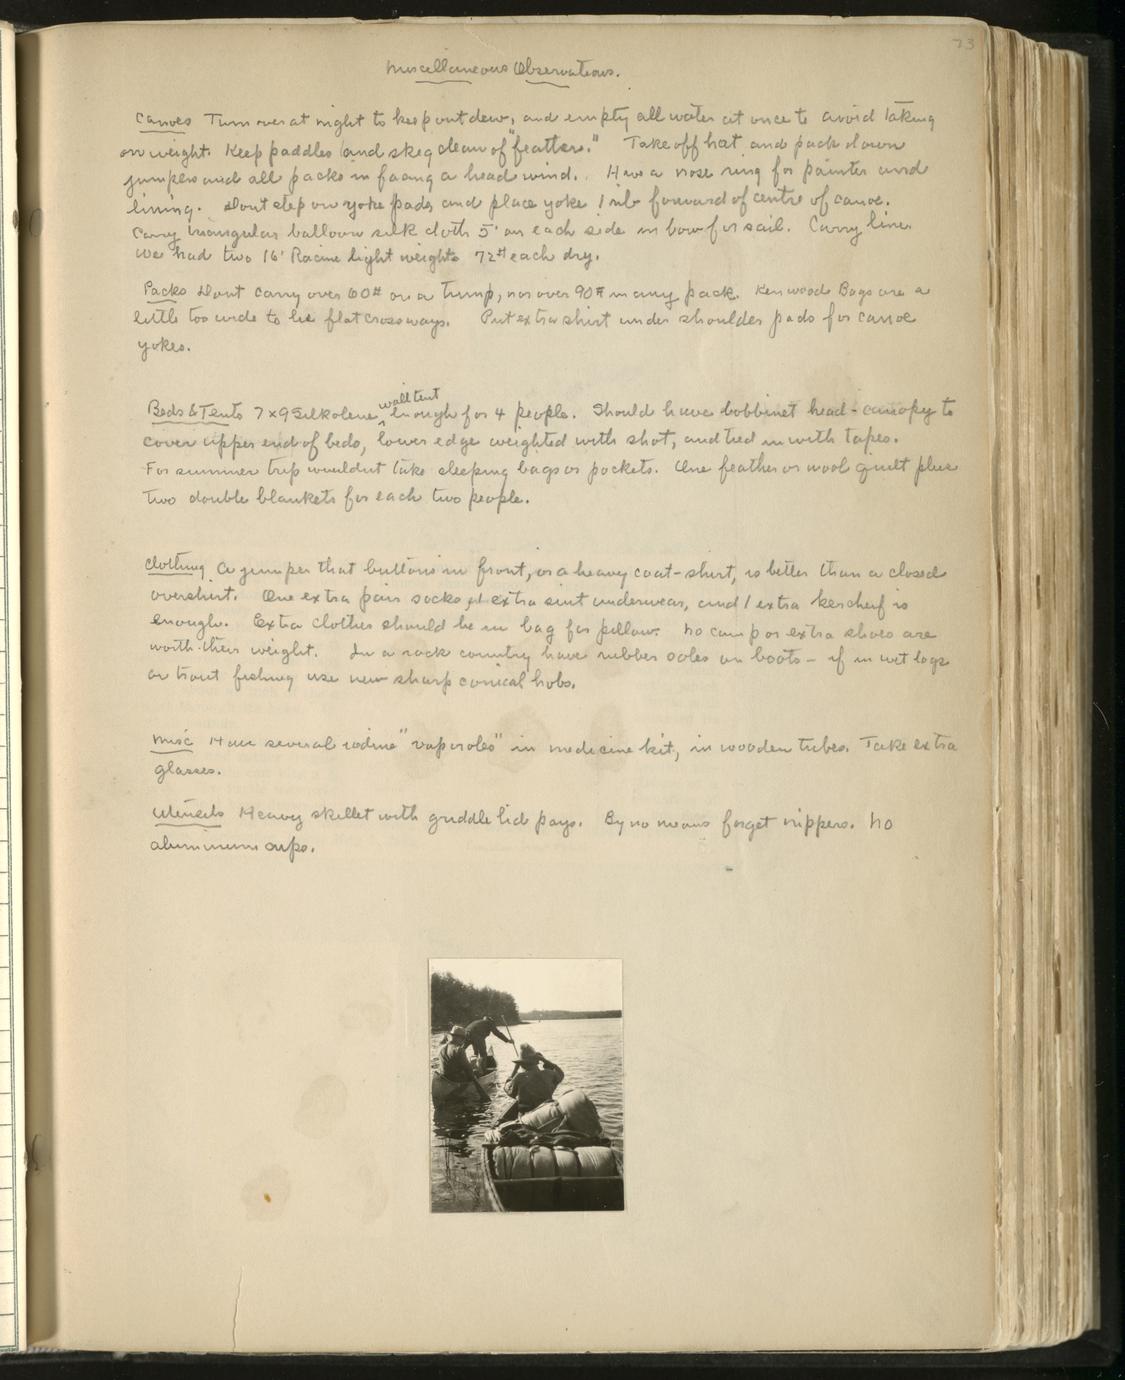 73
Miscellaneous Observations.
Canoes Turn over at night to keep out dew, and empty all water at once to avoid taking
on weight. Keep paddles and skeg clean of "feathers." Take off hat and pack down
jumpers and all packs in facing a head wind. Have a nose ring for painter and
lining. Dont step on yoke pads and place yoke 1 rib forward of centre of canoe.
Carry triangular balloon silk cloth 5' on each side in bow for sail. Carry line.
We had two 16' Racine light weights 72# each dry.
Packs Dont carry over 60# on a trump, nor over 90# in any pack. Kenwood Bags are a
little too wide to lie flat crossways. Put extra shirt under shoulder pads for canoe
yokes.
wall tent
Beds & Tents 7x9 Silkolene ^ enough for 4 people. Should have bobbinet head-canopy to
cover upper end of beds, lower edge weighted with shot, and tied in with tapes.
For summer trip wouldnt take sleeping bags or pockets. One feather or wool quilt plus
two double blankets for each two people.
Clothing A jumper that buttons in front, or a heavy coat-shirt, is better than a closed
overshirt. One extra pair socks, 1 extra suit underwear, and 1 extra kerchief is
enough. Extra clothes should be in bag for pillow. No camp or extra shoes are
worth their weight. In a rock country have rubber soles on boots - if in wet logs
or trout fishing use new sharp conical hobs.
Misc Have several iodine "vaporoles" in medicine kit, in wooden tubes. Take extra
glasses.
Utensils Heavy skillet with griddle lid pays. By no means forget nippers. No
aluminum cups.